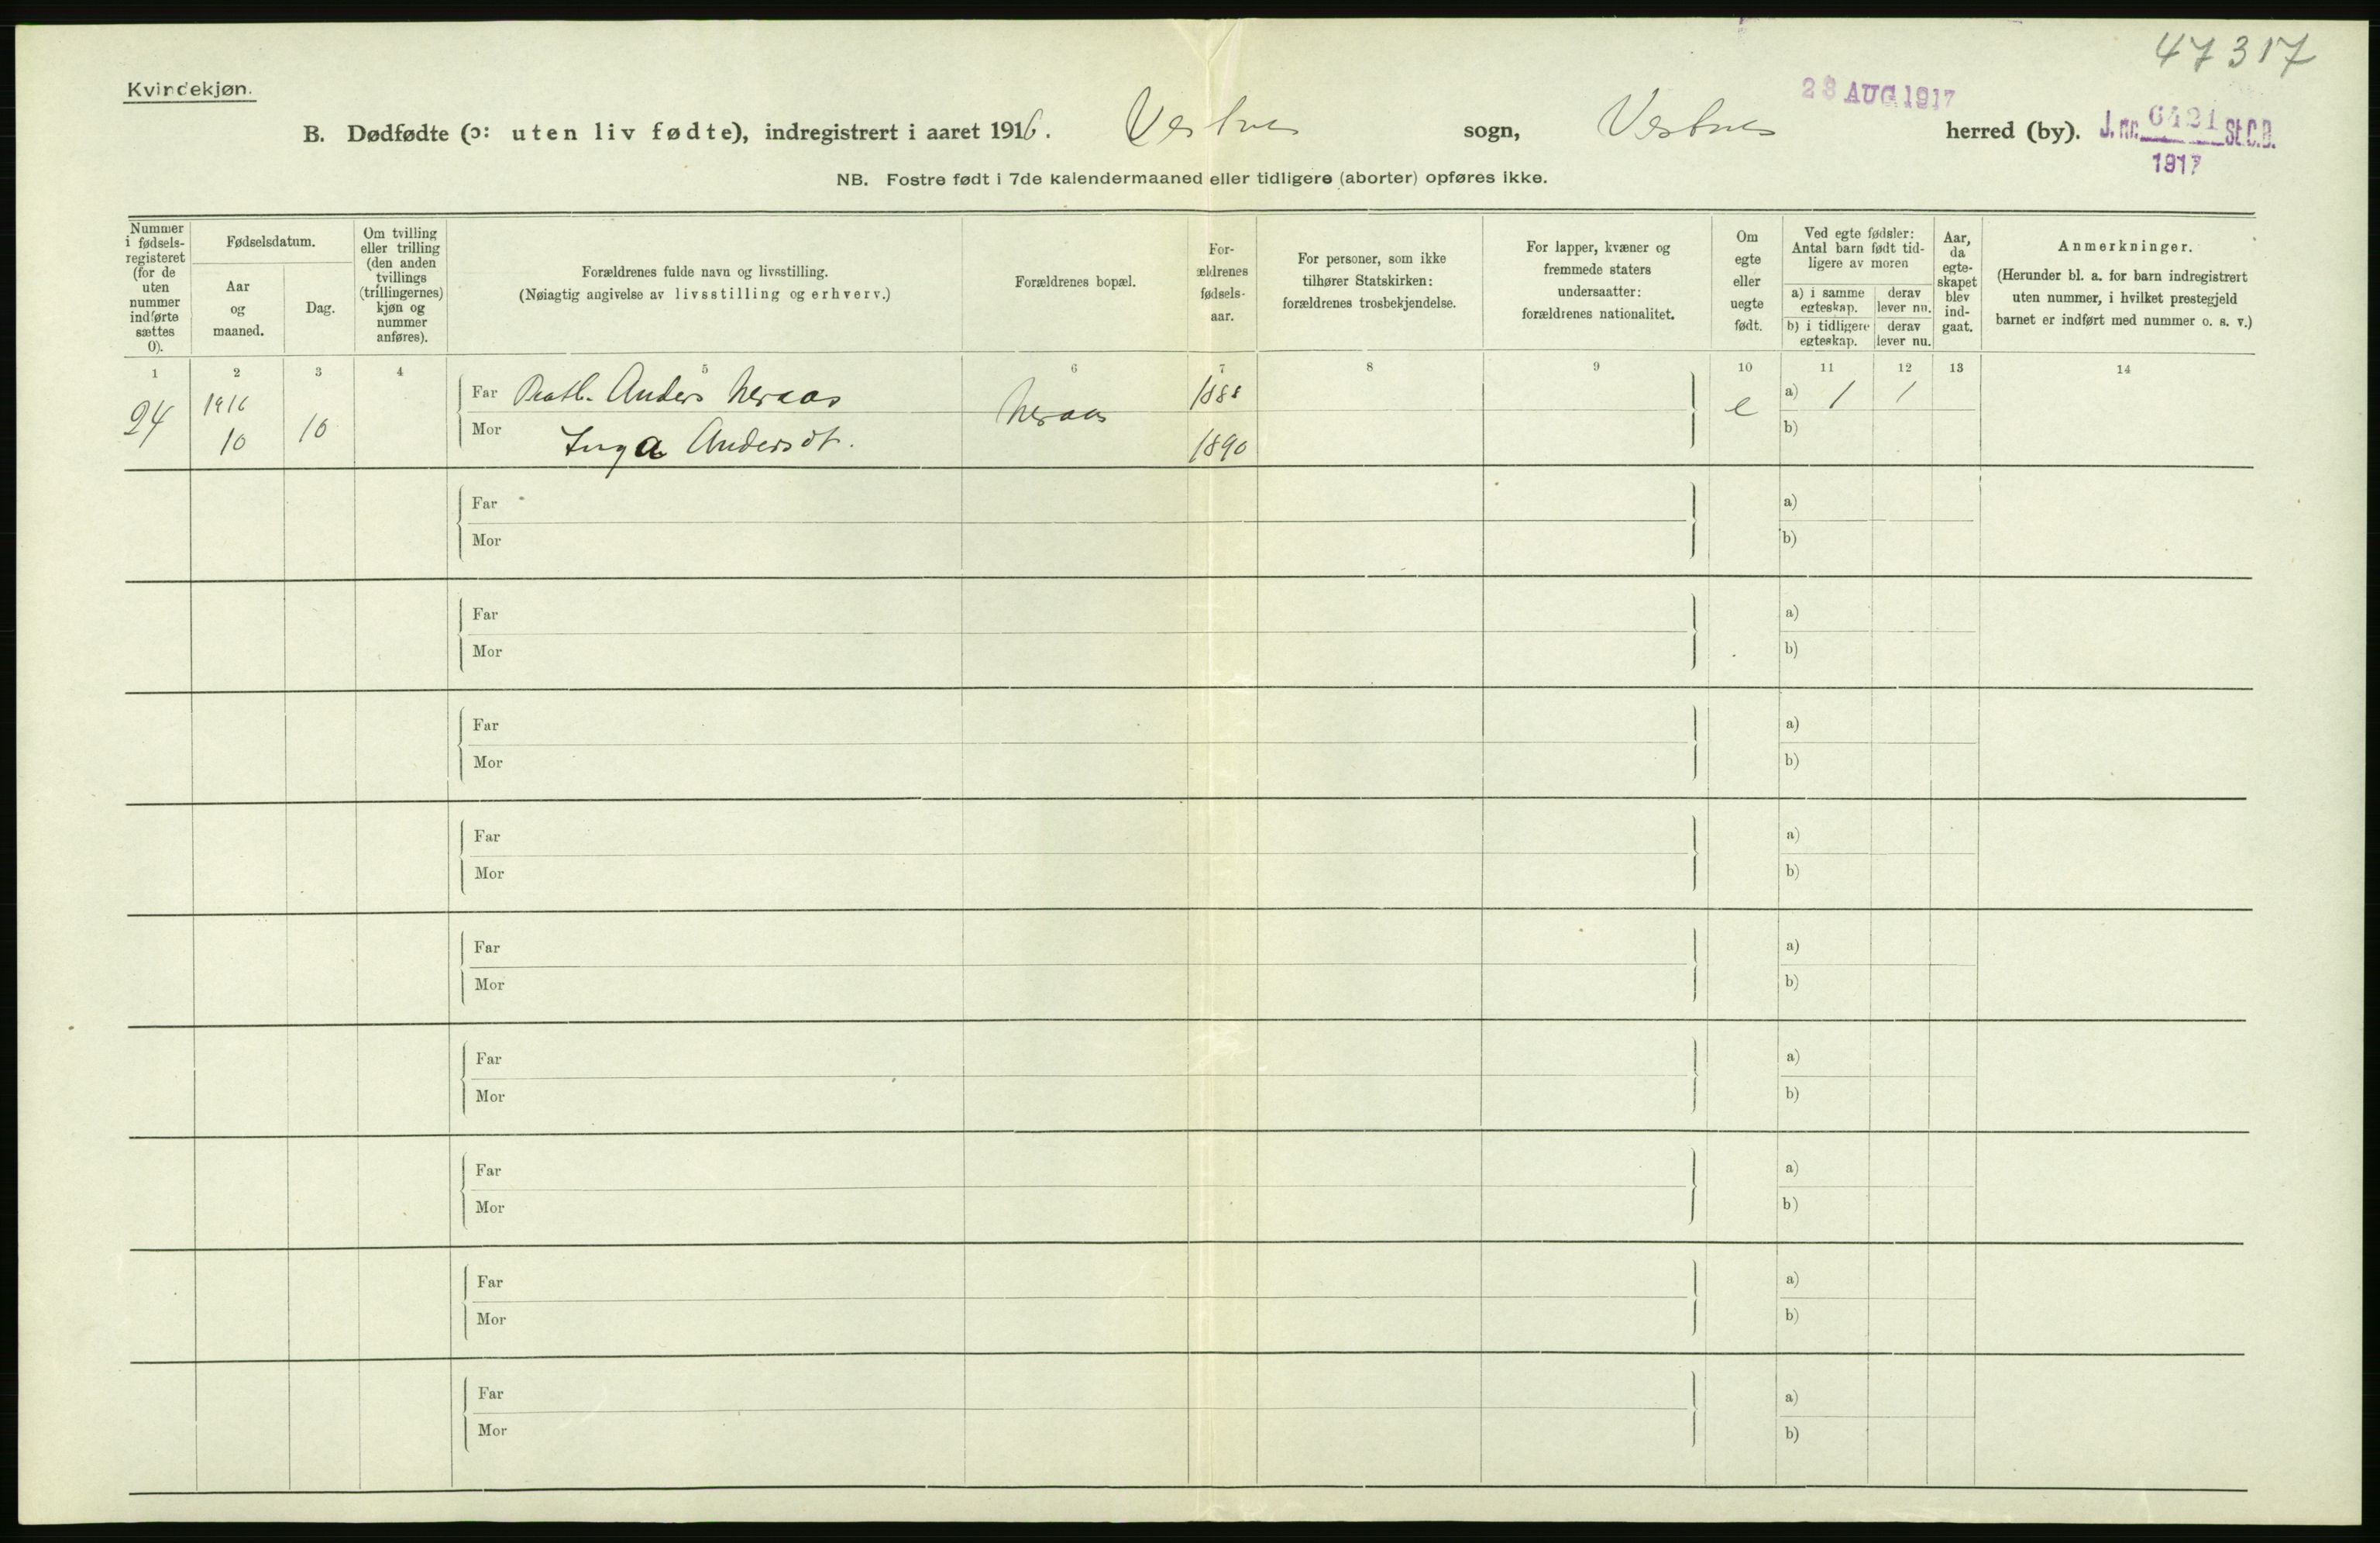 47317
Kvindekjøn.
28 AUG 1917
B. Dødfødte (ɔ: uten liv fødte), indregistrert i aaret 1916. Vestnes sogn, Vestnes herred (by). J. nr. 6421 St.C.B.
1917
NB. Fostre født i 7de kalendermaaned eller tidligere (aborter) opføres ikke.
Nummer i fødsels-registeret (for de uten nummer indførte sættes 0).
Fødselsdatum.
Aar og maaned.
Dag.
Om tvilling eller trilling (den anden tvillings (trillingernes) kjøn og nummer anføres).
Forældrenes fulde navn og livsstilling.
(Nøiagtig angivelse av livsstilling og erhverv.)
Forældrenes bopæl.
For-ældrenes fødsels-aar.
For personer, som ikke tilhører Statskirken: forældrenes trosbekjendelse.
For lapper, kvæner og fremmede staters undersaatter: forældrenes nationalitet.
Om egte eller uegte født.
Ved egte fødsler: Antal barn født tid-ligere av moren
a) i samme egteskap.
derav lever nu.
b) i tidligere egteskap.
derav lever nu.
Aar, da egte-skapet blev ind-gaat.
Anmerkninger.
(Herunder bl. a. for barn indregistrert uten nummer, i hvilket prestegjeld barnet er indført med nummer o. s. v.)
1 2 3 4 5 6 7 8 9 10 11 12 13 14
24 1916 10 10 Far Anders Neraas Neraas 1888 e a) 1 1
Mor Inga Andersdt. 1890 b)
Far a)
Mor b)
Far a)
Mor b)
Far a)
Mor b)
Far a)
Mor b)
Far a)
Mor b)
Far a)
Mor b)
Far a)
Mor b)
Far a)
Mor b)
Far a)
Mor b)